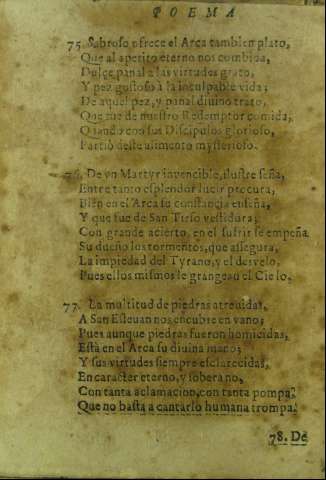 POEMA
75. Sabroso ofrece el Arca tambien plato,
Que al aperito eterno nos combida,
Dulce panal a las virtudes grato,
Y pez gustoso à la inculpable vida;
De aquel pez, y panal divino trato,
Que fue de nuestro Redemptor comida,
Quando con sus Discipulos glorioso,
Partiò deste alimento mysterioso.
76. De vn Martyr invencible, ilustre seña,
Entre tanto esplendor lucir procura,
Bien en el Arca su constancia enseña,
Y que fue de San Tirso vestidura;
Con grande acierto, en el sufrir se empeña
Su dueño los tormentos, que assegura,
La impiedad del Tyrano, y el desvelo,
Pues ellos mismos le grangean el Cielo.
77. La multitud de piedras atreuidas,
A San Esteuan nos encubre en vano;
Pues aunque piedras fueron homicidas,
Està en el Arca su diuina mano;
Y sus virtudes siempre esclarecidas,
En caracter eterno, y soberano,
Con tanta aclamacion, con tanta pompa,
Que no basta a cantarlo humana trompa.
78. De